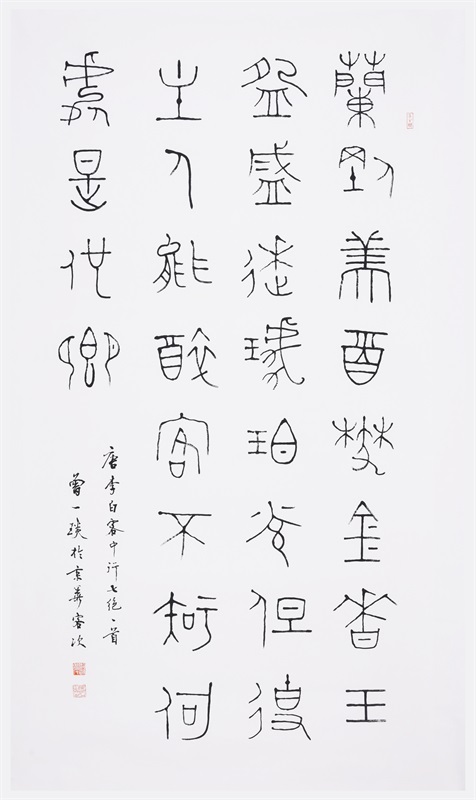 蘭陵美酉鬱金香玉
盌盛徠琥珀光但使
主人能醉客不知何
處是他鄉
唐李白客中行七絕一首
曾一於京華客次